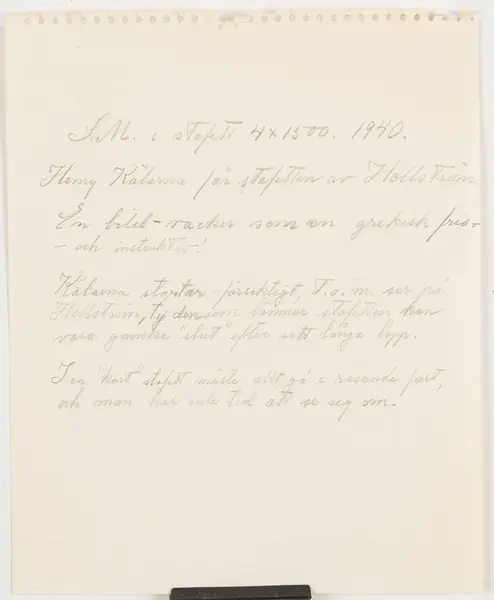 S.M. i stafett 4x1500. 1940.
Henry Kälarne får stafetten av Hellström
En bild - vacker som en grekisk fris -
- och instruktiv!
Kälarne startar försiktigt, t.o.m. ser på
Hellström, ty den som lämnar stafetten kan
vara ganska "slut" efter sitt långa lopp.
I en "kort" stafett måste allt gå i rasande fart,
och man har inte tid att se seg om.